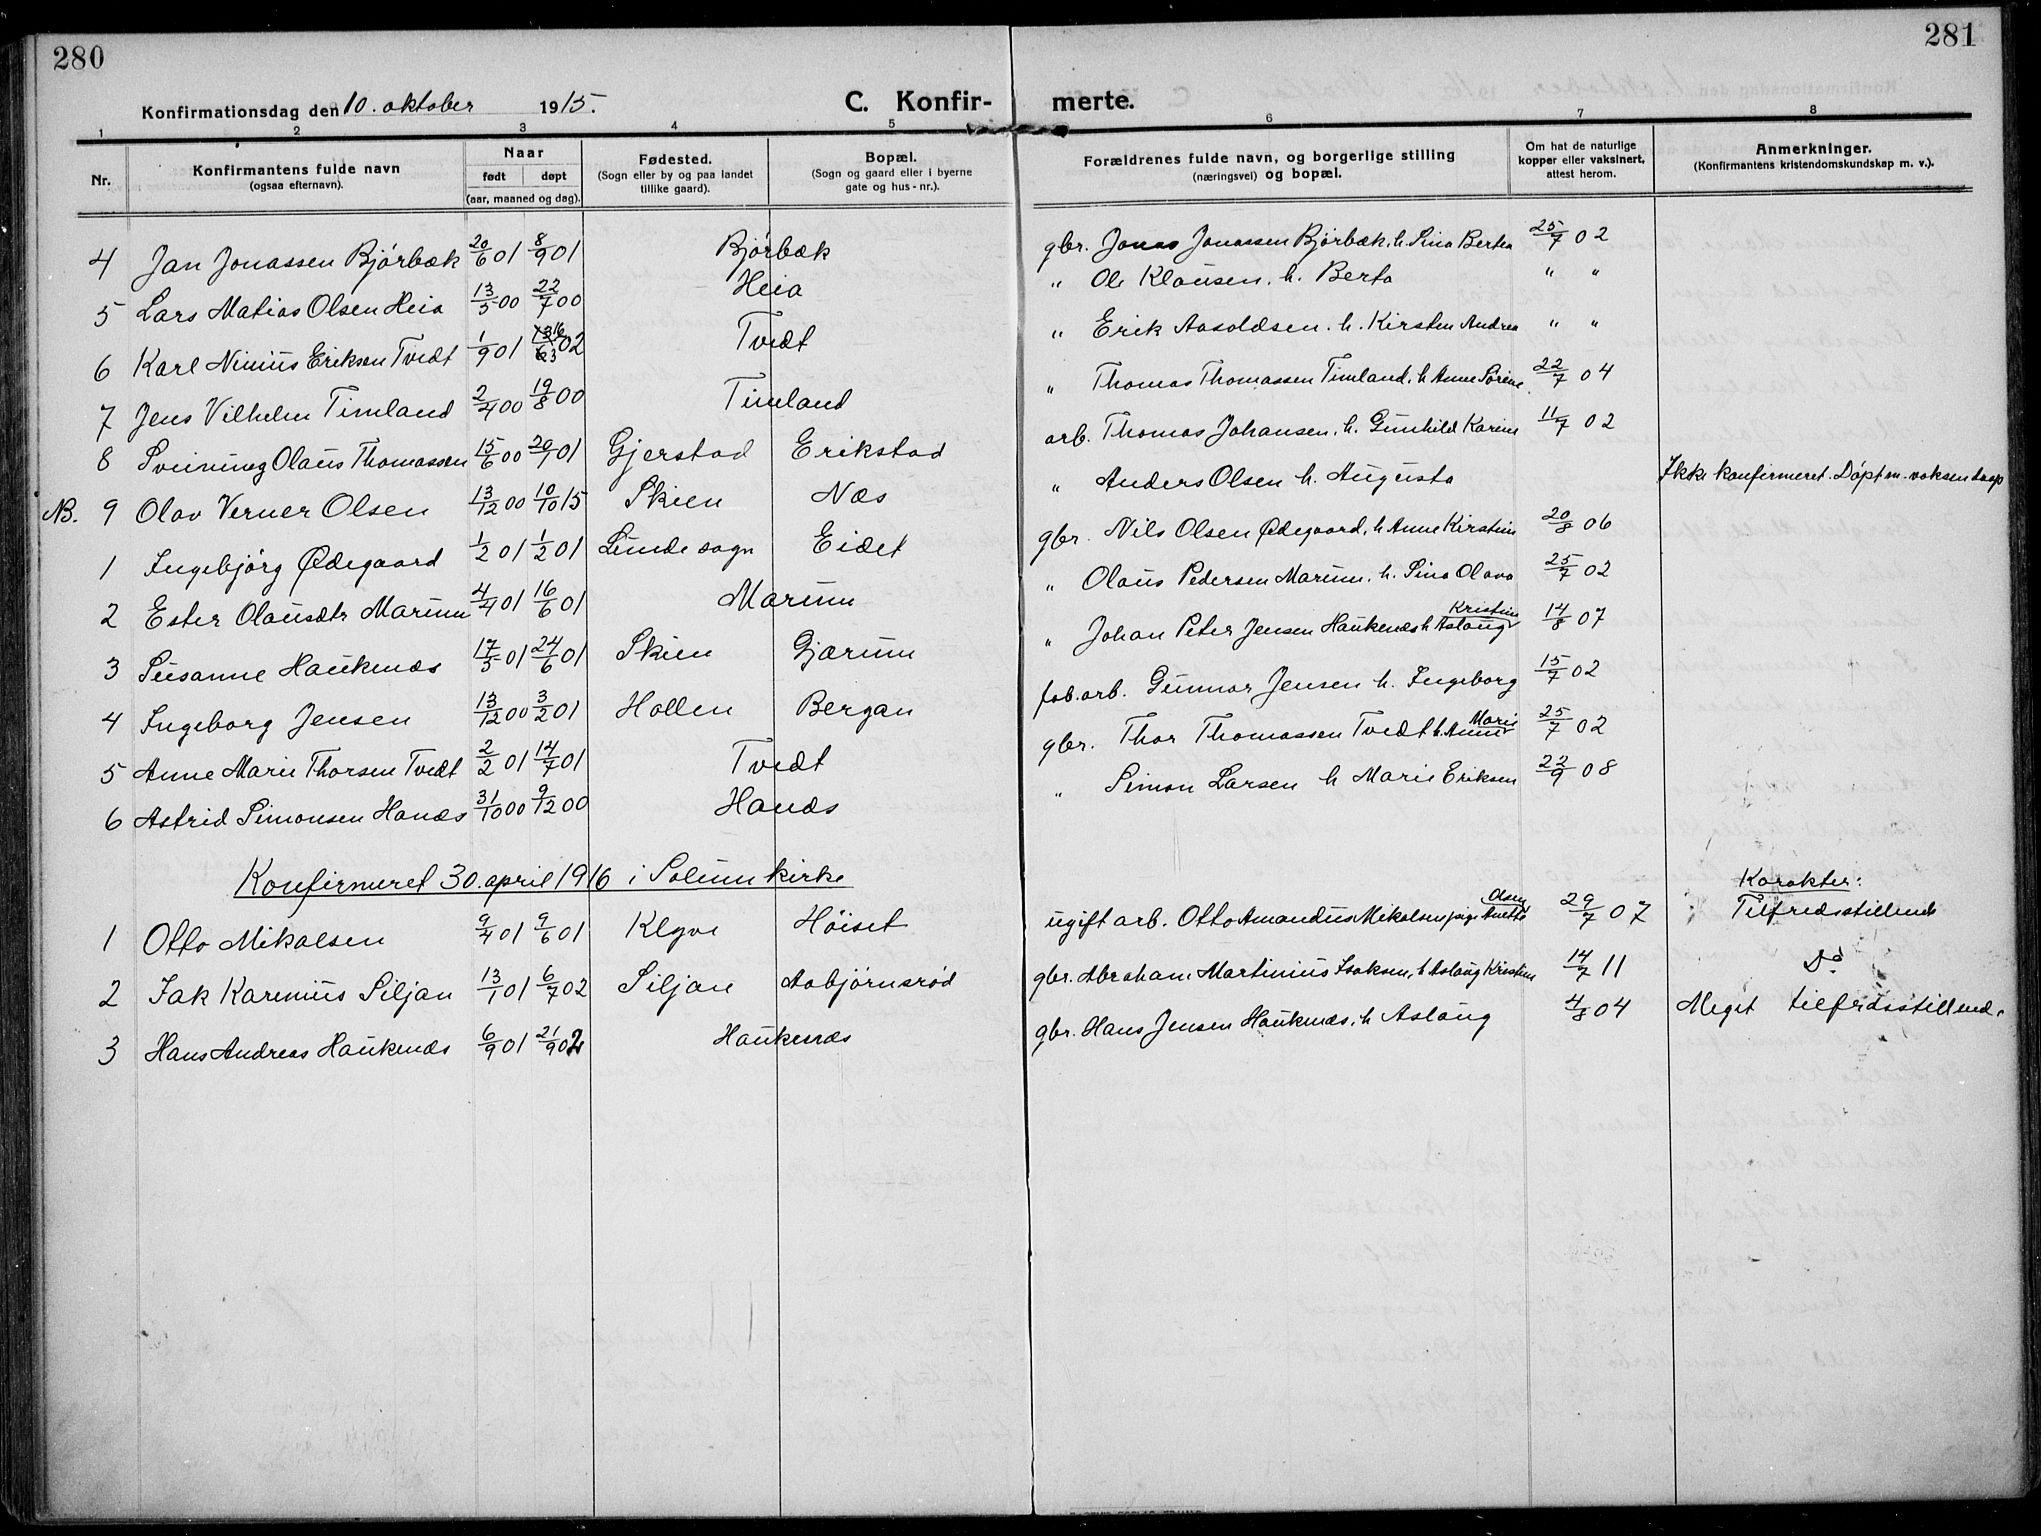 280
281
Konfirmationsdag den 10. oktober 1915.
C. Konfir- merte.
1 2 3 4 5 6 7 8
Nr.
Konfirmantens fulde navn
(ogsaa efternavn).
Naar
født døpt
(aar, maaned og dag).
Fødested.
(Sogn eller by og paa landet
tillike gaard).
Bopæl.
(Sogn og gaard eller i byerne
gate og hus-nr.).
Forældrenes fulde navn, og borgerlige stilling
(næringsvei) og bopæl.
Om hat de naturlige
kopper eller vaksinert,
attest herom.
Anmerkninger.
(Konfirmantens kristendomskundskap m. v.).
4 Jan Jonassen Bjørbæk 20/6 01 8/9 01 Bjørbæk gbr. Jonas Jonassen Bjørbæk, h. Sina Berthea 25/7 02
5 Lars Matias Olsen Heia 13/5 00 22/7 00 Heia " Ole Klausen. h. Berta " "
6 Karl Ninius Eriksen Tvedt 1/9 01 02 Tvedt " Erik Aasoldsen. h. Kirsten Andrea " "
7 Jens Vilhelm Timland 2/4 00 19/8 00 Timland " Thomas Thomassen Timland, h. Anne Sørine 22/7 04
8 Sveinung Olaus Thomassen 15/6 00 20/1 01 Gjerstad Erikstad arb. Thomas Johansen, h. Gunhild Karine 11/7 02
NB. 9 Olav Verner Olsen 13/12 00 10/10 15 Skien Næs " Anders Olsen h. Augusta Ikke konfirmeret. Døpt m. voksen daap
1 Ingebjørg Ødegaard 1/2 01 1/2 01 Lunde sogn Eidet gbr. Nils Olsen Ødegaard, h. Anne Kirstine 20/8 06
2 Ester Olausdtr Marum 4/4 01 16/6 01 Marum " Olaus Pedersen Marum, h. Sina Olava 25/7 02
3 Susanne Haukenæs 17/5 01 24/6 01 Skien Gjærum " Johan Peter Jensen Haukenæs h Aslaug Kristine 14/8 07
4 Ingeborg Jensen 13/12 00 3/2 01 Hollen Bergan fab.arb. Gunnar Jensen h. Ingeborg 15/7 02
5 Anne Marie Thorsen Tvedt 2/2 01 14/7 01 Tvedt gbr. Thor Thomassen Tvedt h. Anne Marie 25/7 02
6 Astrid Simonsen Hanæs 31/10 00 9/12 00 Hanæs " Simon Larsen h Marie Eriksen 22/9 08
Konfirmeret 30. april 1916 i Solum kirke
Karakter:
1 Otto Mikalsen 9/4 01 9/6 01 Klyve Høiset ugift arb. Otto Amandus Mikalsen pige Anetta Olsen 29/7 07 Tilfredsstillende
2 Isak Karenius Siljan 13/1 01 6/7 02 Siljan Aabjørnsrød gbr. Abraham Martinius Isaksen, h Aslaug Kristine 14/7 11 Do
3 Hans Andreas Haukenæs 6/9 01 21/9 02 Haukenæs gbr. Hans Jensen Haukenæs, h Aslaug 4/8 04 Meget tilfredsstillende